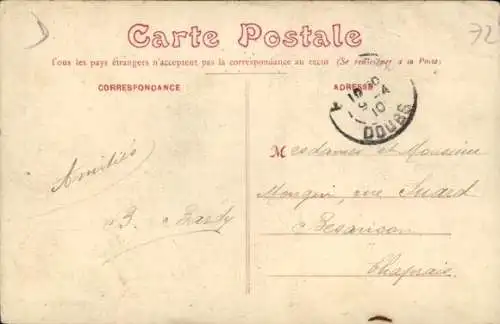 72
Carte Postale
Tous les pays étrangers n'acceptent pas la correspondance au recto (Se renseigner à la Poste)
CORRESPONDANCE
ADRESSE
19 30
9 - 4
10
DOUBS
Amitiés
B. Bardy
Mesdames et Monsieur
Mougin, rue Suard
Besançon
Chaprais